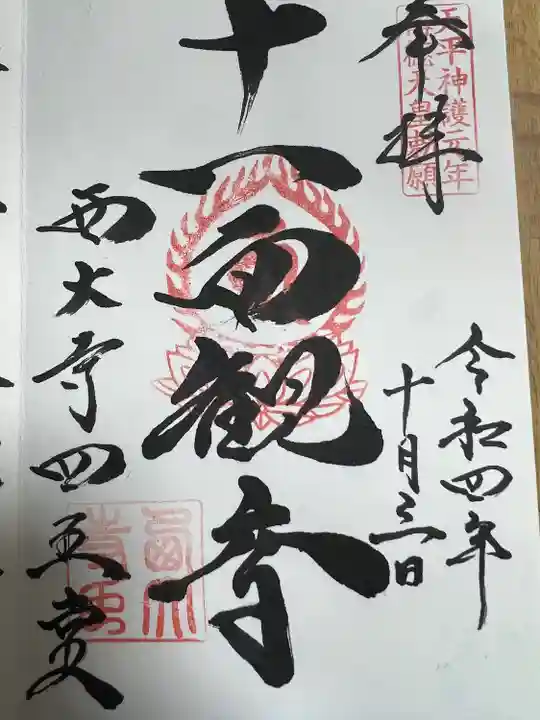 奉拝
天平神護元年
称徳天皇勅願
令和四年
十月三日
十一面観音
西大寺四王堂